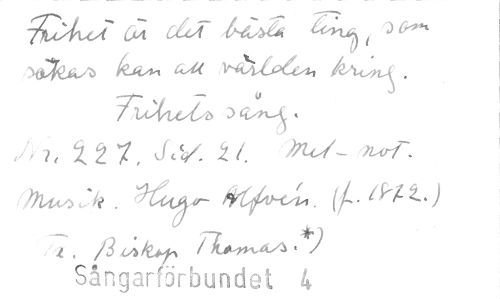 Frihet är det bästa ting, som
sökas kan all världen kring.
Frihetssång.
Nr. 227. Sid. 21. Mel-not.
Musik. Hugo Alfvén. (f. 1872.)
Tx. Biskop Thomas.*)
Sångarförbundet 4